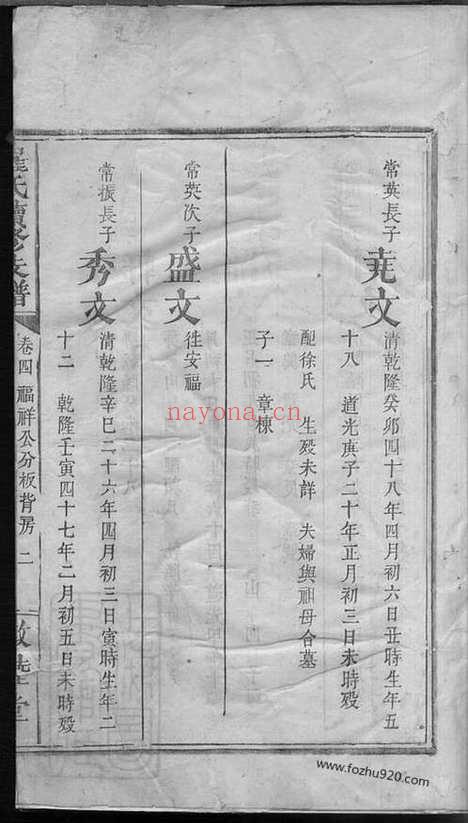 常英長子
堯文
清乾隆癸卯四十八年四月初六日丑時生年五
十八 道光庚子二十年正月初三日未時殁
配徐氏 生殁未詳 夫婦與祖母合墓
子一 章棟
常英次子
盛文
徃安福
常振長子
秀文
清乾隆辛巳二十六年四月初三日寅時生年二
十二 乾隆壬寅四十七年二月初五日未時殁
氏續修支譜
卷四 福祥公分板背房 二
敦睦堂
nayona.cn
www.fozhu920.com